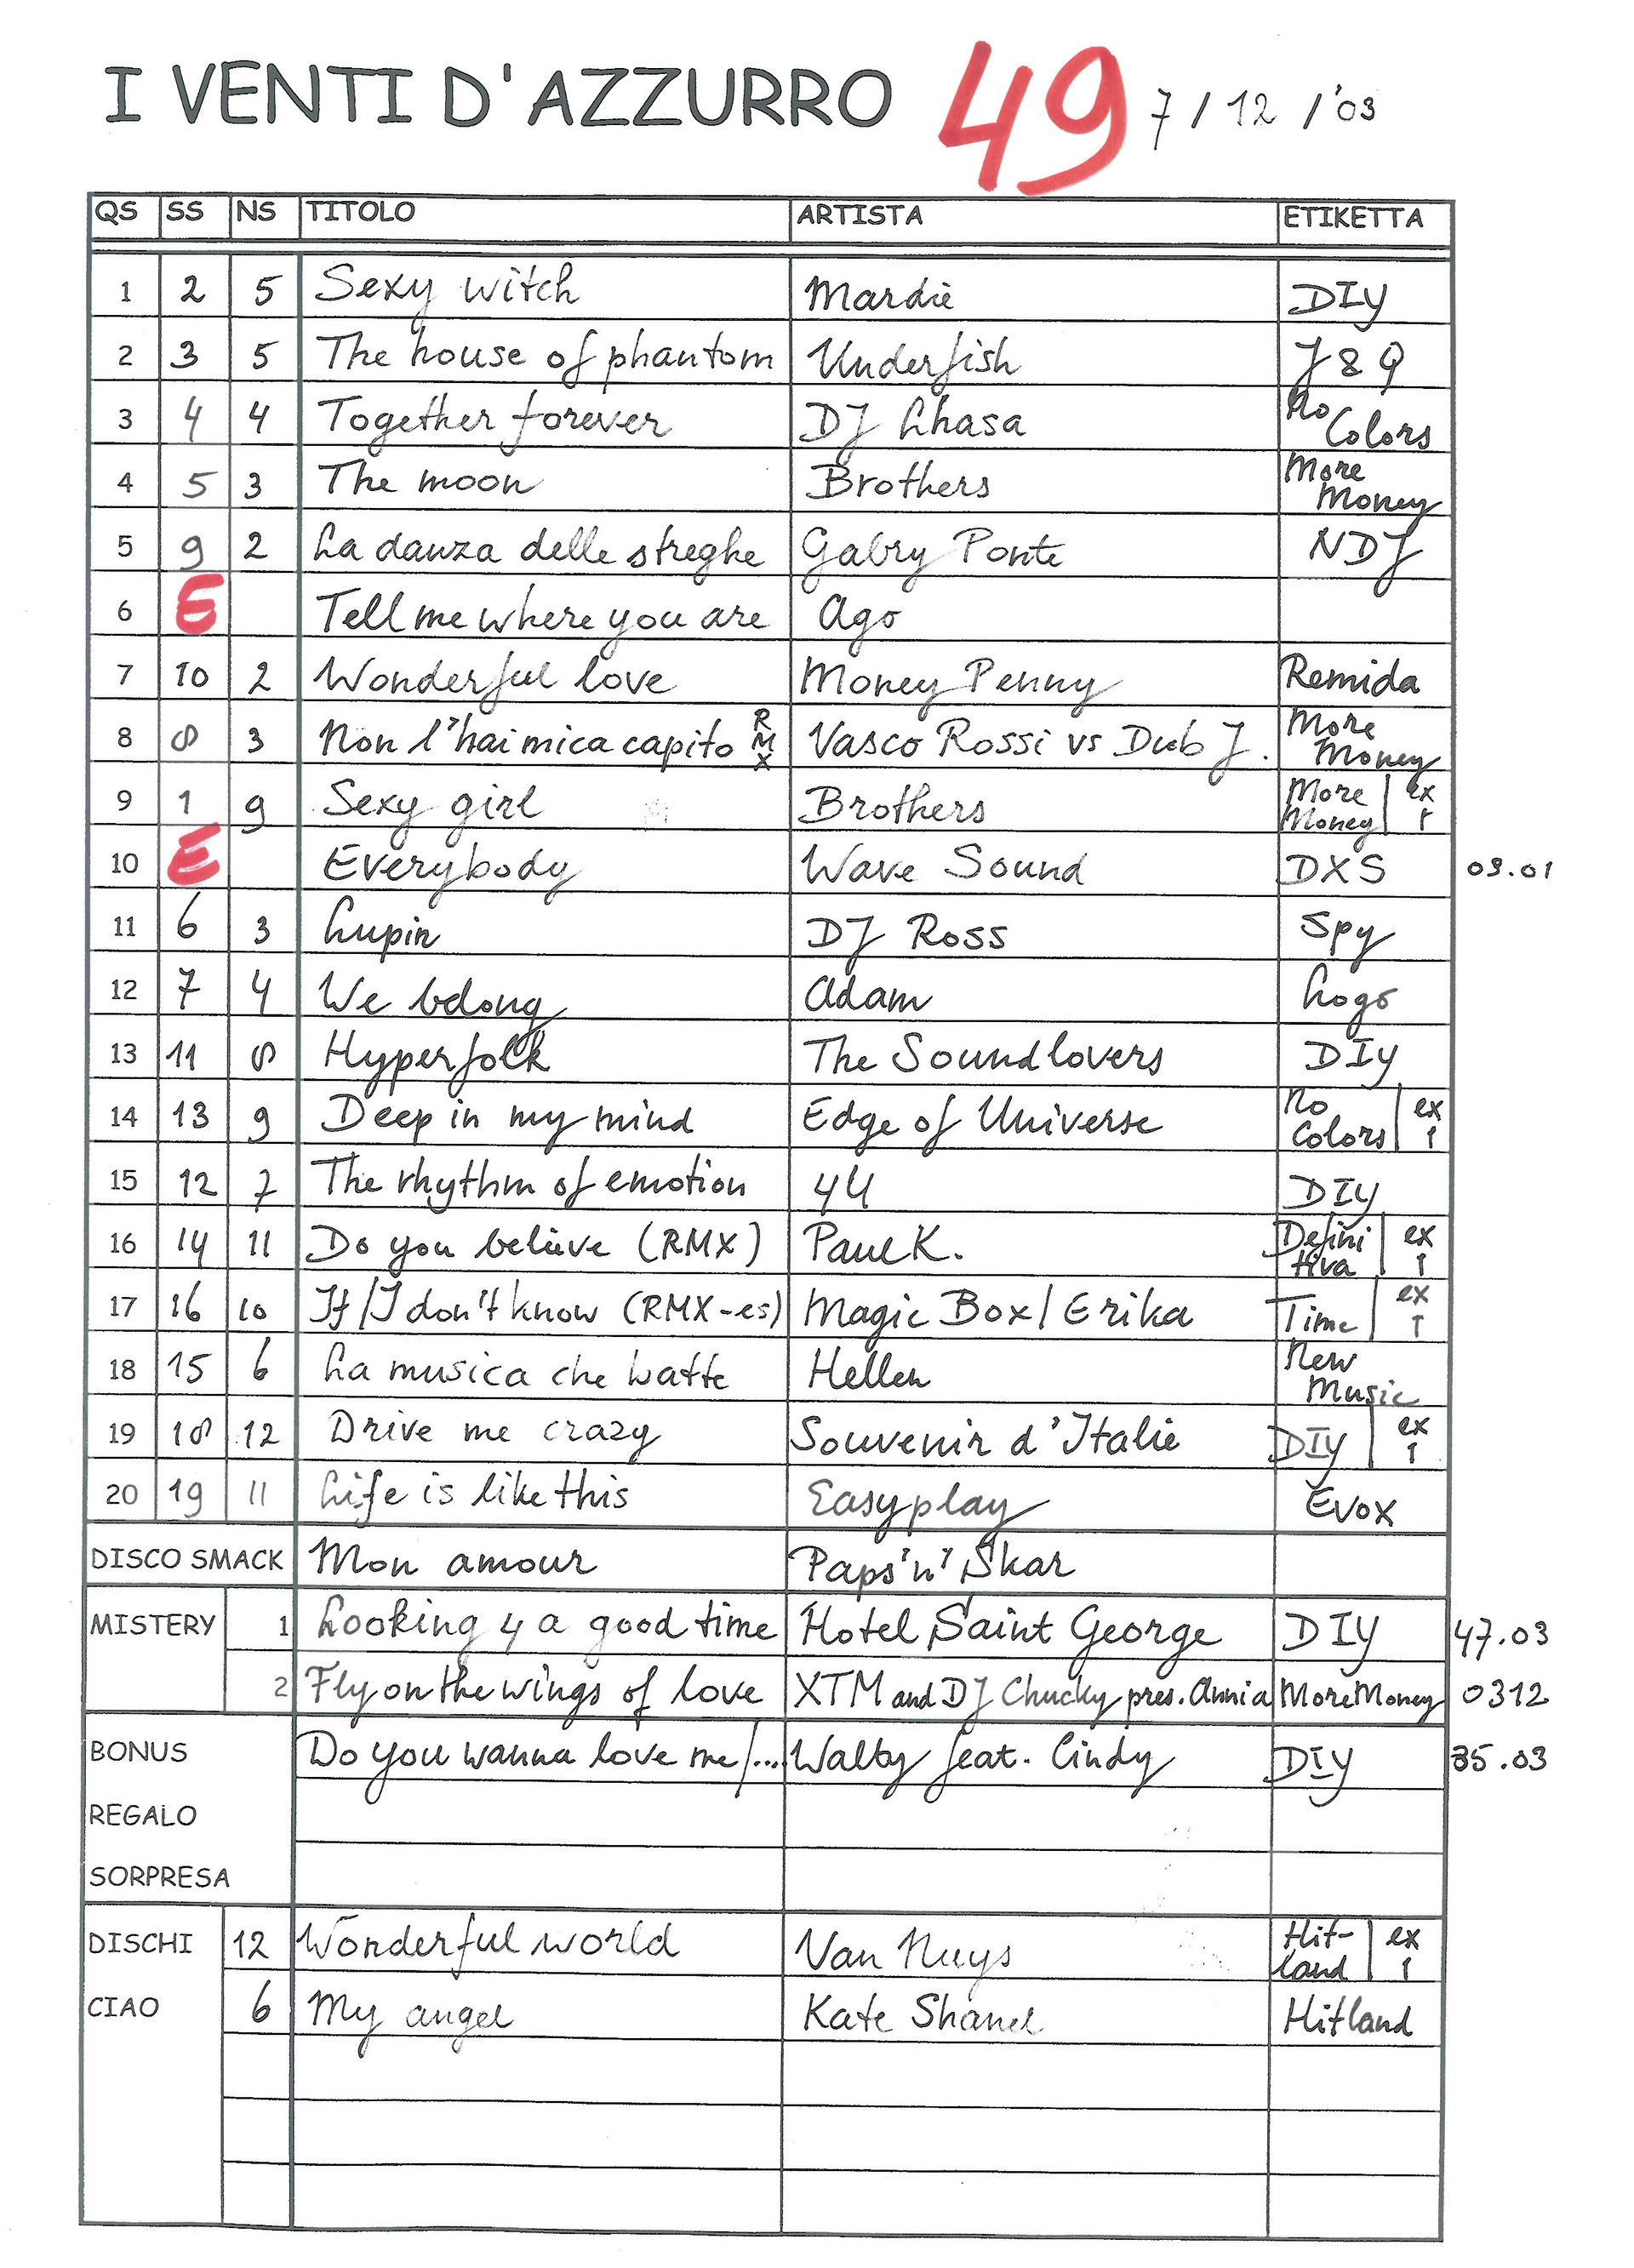 I VENTI D'AZZURRO 49 7/12/'03
QS SS NS TITOLO ARTISTA ETIKETTA
1 2 5 Sexy witch Mardie DIY
2 3 5 The house of phantom Underfish J & Q
3 4 4 Together forever DJ Lhasa No Colors
4 5 3 The moon Brothers More Money
5 9 2 La danza delle streghe Gabry Ponte NDJ
6 E Tell me where you are Ago
7 10 2 Wonderful love Money Penny Remida
8 8 3 Non l'hai mica capito RMX Vasco Rossi vs Dub J. More Money
9 1 9 Sexy girl Brothers More Money ex 1
10 E Everybody Wave Sound DXS 03.01
11 6 3 Lupin DJ Ross Spy
12 7 4 We belong Adam Logo
13 11 8 Hyperfolk The Soundlovers DIY
14 13 9 Deep in my mind Edge of Universe No Colors ex 1
15 12 7 The rhythm of emotion 4U DIY
16 14 11 Do you believe (RMX) Paul K. Definitiva ex 1
17 16 10 If/I don't know (RMX-es) Magic Box/Erika Time ex 1
18 15 6 La musica che batte Hellen New Music
19 18 12 Drive me crazy Souvenir d'Italie DIY ex 1
20 19 11 Life is like this Easyplay Evox
DISCO SMACK Mon amour Paps'n'Skar
MISTERY 1 Looking 4 a good time Hotel Saint George DIY 47.03
2 Fly on the wings of love XTM and DJ Chucky pres. Annia More Money 0312
BONUS Do you wanna love me/.... Walby feat. Cindy DIY 35.03
REGALO
SORPRESA
DISCHI 12 Wonderful world Van Nuys Hit-land ex 1
CIAO 6 My angel Kate Shanel Hitland